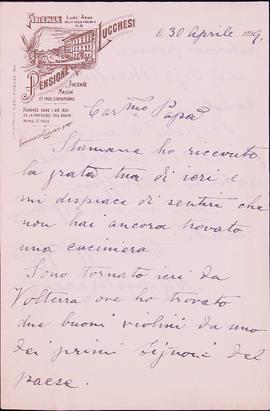 FIRENZE
LUNG'ARNO
PENSIONE LUCCHESI
ANCIENNE
MAISON
ET TRÈS CONFORTABLE
li 30 Aprile 189
Car.mo Papà
Stamane ho ricevuto
la grata tua di ieri e
mi dispiace di sentire che
non hai ancora trovato
una cuciniera
Sono tornato ieri da
Volterra ove ho trovato
due buoni violini da uno
dei primi Signori del
paese.